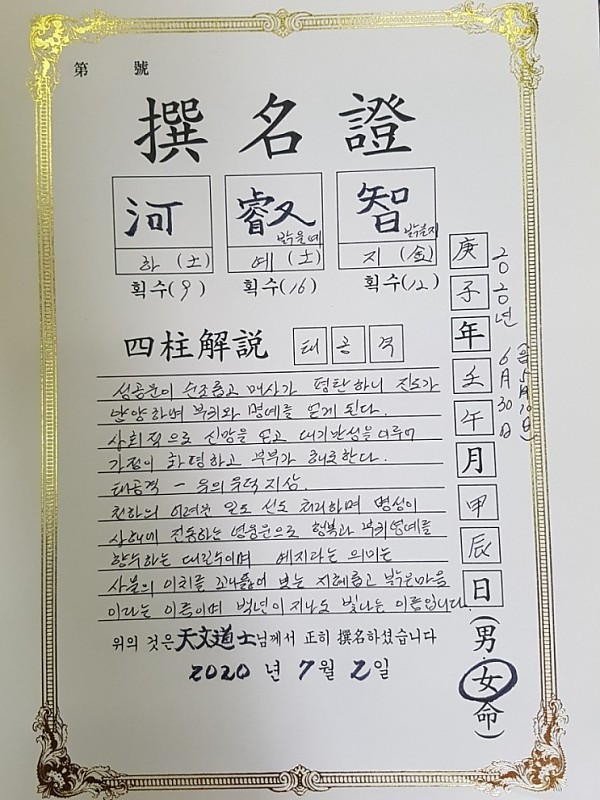 第 號
撰名證
河 叡 智
밝을예 밝을지
하 (土) 예 (土) 지 (金)
획수(9) 획수(16) 획수(12)
四柱解説 태 공 격
성공운이 순조롭고 매사가 평탄하니 진로가
양양하며 부귀와 명예를 얻게 된다.
사회적으로 신망을 얻고 대기만성을 이루며
가정이 화평하고 부부가 해로한다.
태공격 - 유의유덕지상.
천하의 어려운 일도 선도 처리하며 명성이
사해에 진동하는 영웅운으로 행복과 부귀영예를
향수하는 대길수이며 예지라는 의미는
사물의 이치를 꿰뚫어 보는 지혜롭고 밝은마음
이라는 이름이며 백년이 지나도 빛나는 이름입니다.
위의 것은 天文道士님께서 正히 撰名하셨습니다
2020 년 7월 2일
庚子年壬午月甲辰日(男·女命)
2020년 6月 30日
(음 5月 10日)